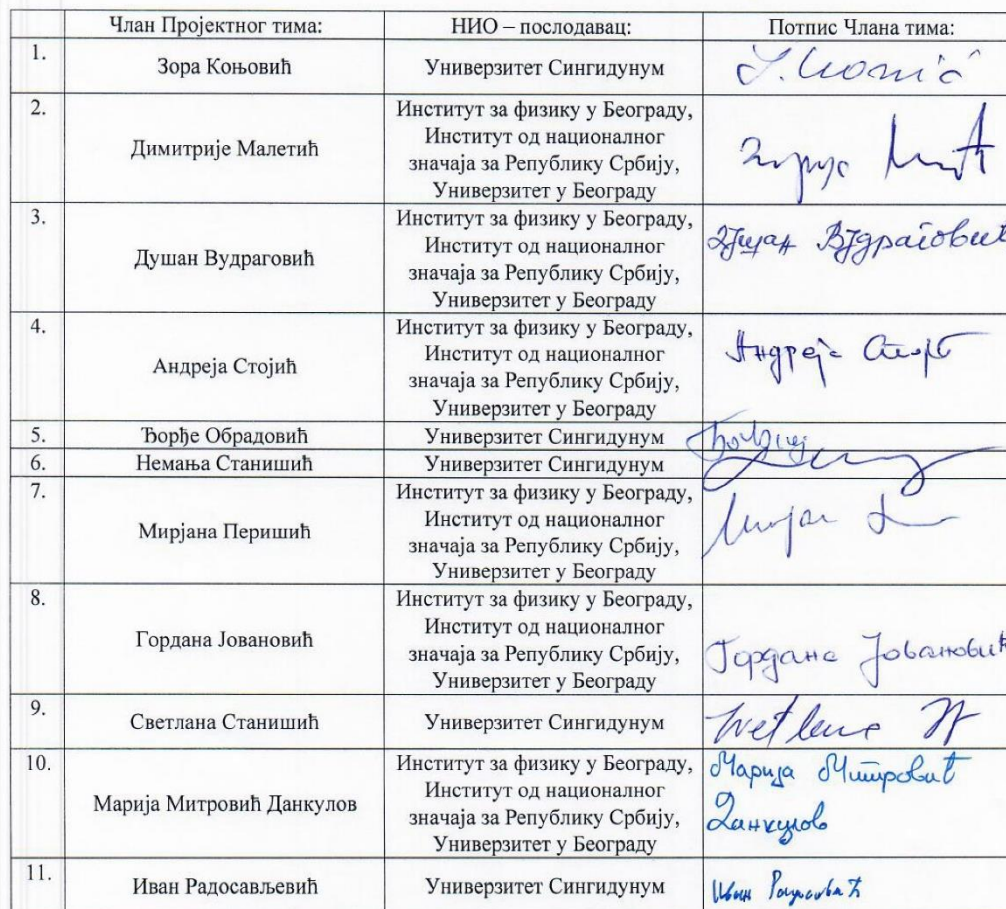 Члан Пројектног тима: НИО – послодавац: Потпис Члана тима:
1. Зора Коњовић Универзитет Сингидунум
2. Димитрије Малетић Институт за физику у Београду,
Институт од националног
значаја за Републику Србију,
Универзитет у Београду
3. Душан Вудраговић Институт за физику у Београду,
Институт од националног
значаја за Републику Србију,
Универзитет у Београду
Душан Вудраговић
4. Андреја Стојић Институт за физику у Београду,
Институт од националног
значаја за Републику Србију,
Универзитет у Београду
Андреја
5. Ђорђе Обрадовић Универзитет Сингидунум
6. Немања Станишић Универзитет Сингидунум
7. Мирјана Перишић Институт за физику у Београду,
Институт од националног
значаја за Републику Србију,
Универзитет у Београду
8. Гордана Јовановић Институт за физику у Београду,
Институт од националног
значаја за Републику Србију,
Универзитет у Београду
Гордана Јовановић
9. Светлана Станишић Универзитет Сингидунум
10. Марија Митровић Данкулов Институт за физику у Београду,
Институт од националног
значаја за Републику Србију,
Универзитет у Београду
Марија Митровић
Данкулов
11. Иван Радосављевић Универзитет Сингидунум Иван